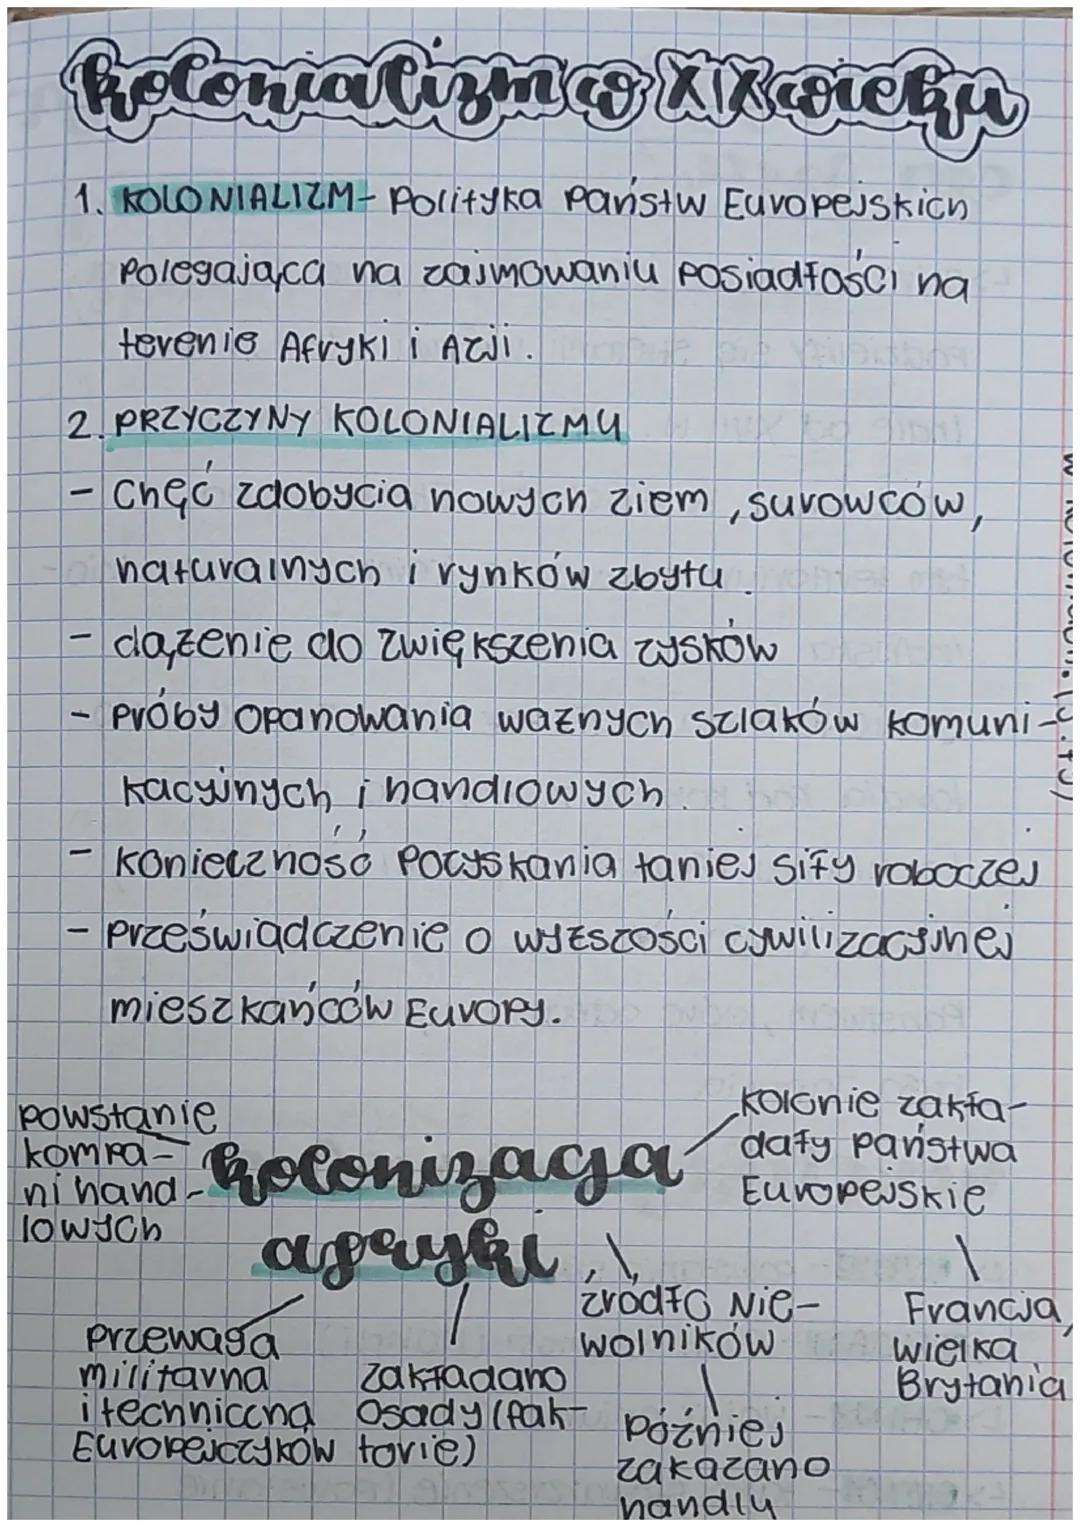 kolonializm w XIX wieku
1. KOLONIALIZM - Polityka Państw Europejskich
Polegająca na zajmowaniu posiadłości na
terenie Afryki i Azji.
2. PRZYCZYNY KOLONIALIZMU
- Chęć zdobycia nowych ziem, surowców,
naturalnych i rynków zbytu.
- dążenie do zwiększenia zysków
- Próby opanowania ważnych szlaków komuni-
kacyjnych i handlowych.
- konieczność pozyskania taniej siły roboczej
- Przeświadczenie o wyższości cywilizacyjnej
mieszkańców Europy.
powstanie
kompa-
ni hand-
lowych
kolonizacja
afryki
kolonie zakła-
dały państwa
Europejskie
Francja,
wielka
Brytania
źródło Nie-
wolników
Później
zakazano
handlu
zakładano
osady (fak-
torie)
przewaga
militarna
i techniczna
Europejczyków